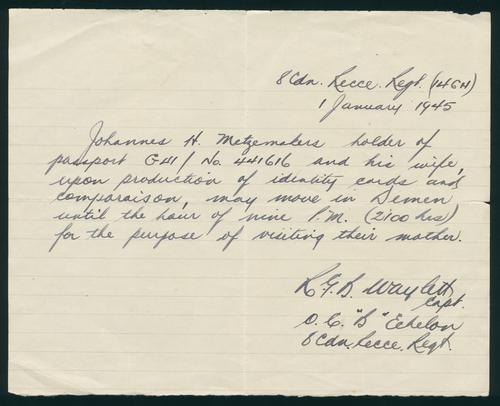 8 Cdn. Recce. Regt. (14CH)
1 January 1945
Johannes H. Metzemakers holder of
passport G41/ No. 441616 and his wife,
upon production of identity cards and
comparaison, may move in Demen
until the hour of nine P.M. (2100 hrs)
for the purpose of visiting their mother.
Capt.
O.C. "B" Echelon
8 Cdn. Recce. Regt.